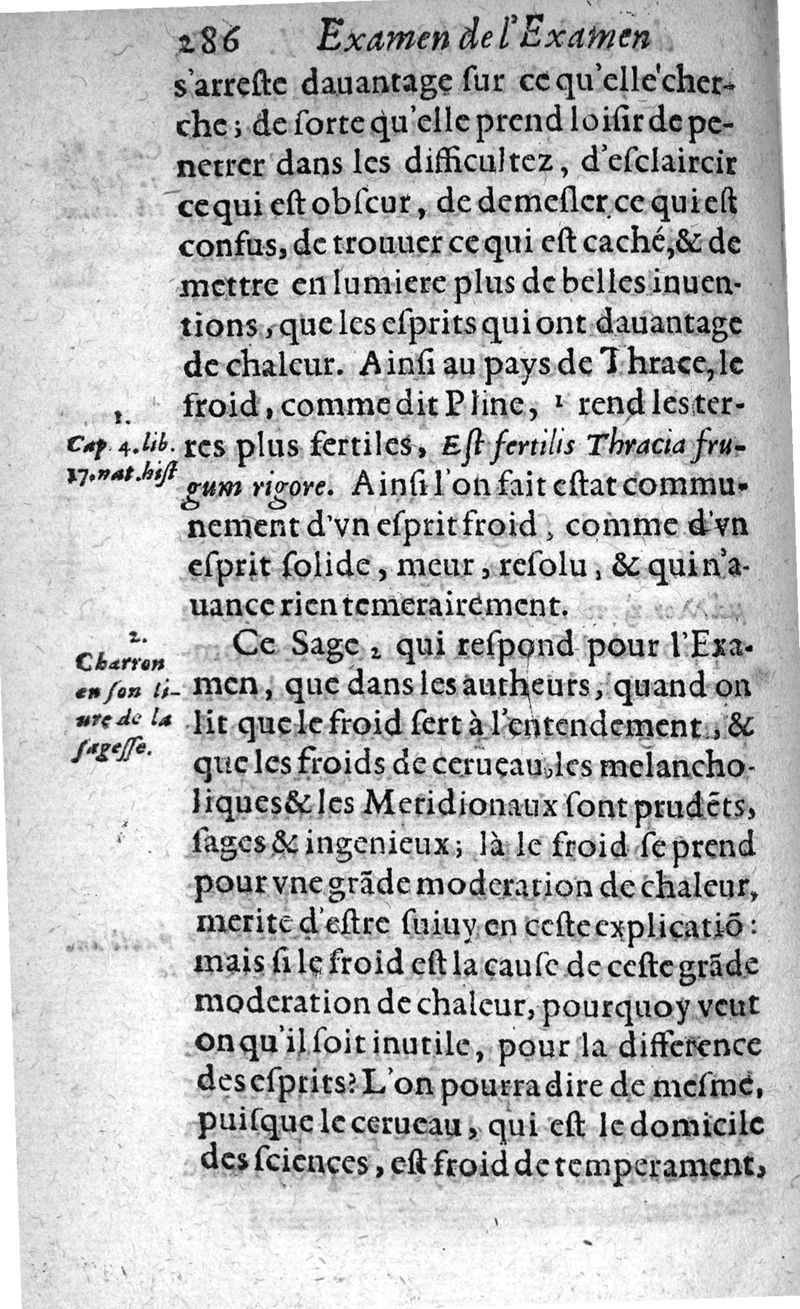 286 Examen de l'Examen
s'arreſte dauantage ſur ce qu'elle cher-
che; de ſorte qu'elle prend loiſir de pe-
netrer dans les difficultez, d'eſclaircir
ce qui eſt obſcur, de demeſler ce qui eſt
confus, de trouuer ce qui eſt caché, & de
mettre en lumiere plus de belles inuen-
tions, que les eſprits qui ont dauantage
de chaleur. Ainſi au pays de Thrace, le
froid, comme dit Pline, 1 rend les ter-
res plus fertiles, Eſt fertilis Thracia fru-
gum rigore. Ainſi l'on fait eſtat commu-
nement d'vn eſprit froid, comme d'vn
eſprit ſolide, meur, reſolu, & qui n'a-
uance rien temerairement.
1.
Cap. 4. lib.
17. nat. hiſt
Ce Sage 2 qui reſpond pour l'Exa-
men, que dans les autheurs, quand on
lit que le froid ſert à l'entendement, &
que les froids de cerueau, les melancho-
liques & les Meridionaux ſont prudẽts,
ſages & ingenieux; là le froid ſe prend
pour vne grãde moderation de chaleur,
merite d'eſtre ſuiuy en ceſte explicatiõ:
mais ſi le froid eſt la cauſe de ceſte grãde
moderation de chaleur, pourquoy veut
on qu'il ſoit inutile, pour la difference
des eſprits? L'on pourra dire de meſme,
puiſque le cerueau, qui eſt le domicile
des ſciences, eſt froid de temperament,
2.
Charron
en ſon li-
ure de la
ſageſſe.